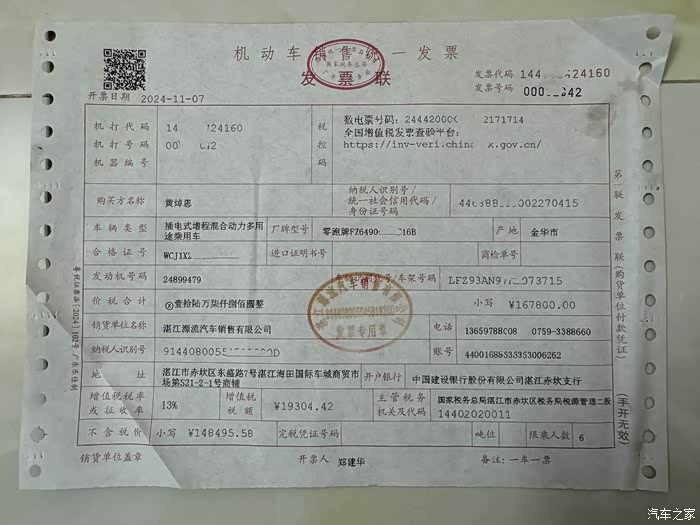 机动车销售统一发票
发票联
发票代码 144 24160
发票号码 000 342
开票日期 2024-11-07
机打代码 14 124160
机打号码 00
机器编号
税控码
数电票号码: 24442000 2171714
全国增值税发票查验平台:
https://inv-veri.china .gov.cn/
购买方名称 黄焯恩
纳税人识别号/
统一社会信用代码/
身份证号码
002270415
车辆类型 插电式增程混合动力多用
途乘用车
厂牌型号 零跑牌FZ6490 16B
产地 金华市
合格证号 WCJ1X
进口证明书号
商检单号
发动机号码 24899479
车架号码 LFZ93AN9 073715
价税合计 ⊗壹拾陆万柒仟捌佰圆整
小写 ¥167800.00
销货单位名称 湛江源流汽车销售有限公司
电话 13659788 08 0759-3388660
纳税人识别号 9144080055
账号 44001688 5353006262
地址 湛江市赤坎区东盛路7号湛江海田国际车城商贸市
场第S21-2-1号商铺
开户银行 中国建设银行股份有限公司湛江赤坎支行
增值税税率
或征收率 13%
增值税
税额 ¥19304.42
主管税务
机关及代码
国家税务总局湛江市赤坎区税务局税源管理二股
14402020011
不含税价 小写 ¥148495.58
完税凭证号码
吨位
限乘人数 6
销货单位盖章
开票人 郑建华
备注: 一车一票
第一联 发票联(购货单位付款凭证)
(手开无效)
发票专用章
汽车之家